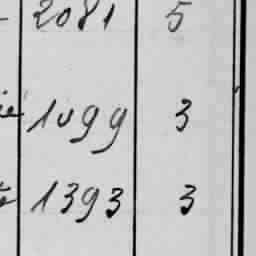 2081 5
1099 3
1393 3